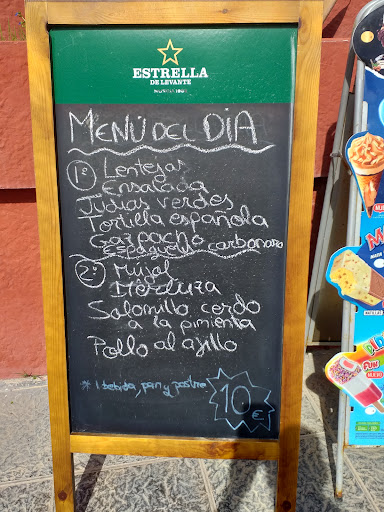 ESTRELLA
DE LEVANTE
MENÚ DEL DIA
1º Lentejas
Ensalada
Judias verdes
Tortilla española
Gazpacho
Espaguetis carbonara
2º Mujol
Merluza
Solomillo cerdo
a la pimienta
Pollo al ajillo
* 1 bebida, pan y postre
10 €